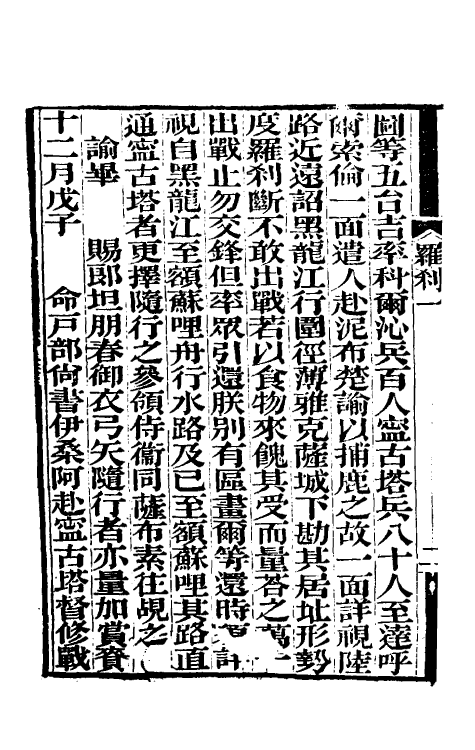 羅刹
圖等五台吉率科爾沁兵百人寧古塔兵八十人至達呼
爾索倫一面遣人赴泥布楚諭以捕鹿之故一面詳視陸
路近遠詔黑龍江行圍徑薄雅克薩城下勘其居址形勢
度羅刹斷不敢出戰若以食物來餽其受而量荅之萬一
出戰止勿交鋒但率眾引還朕別有區畫爾等還時詳
視自黑龍江至額蘇哩舟行水路及已至額蘇哩其路直
通寧古塔者更擇隨行之參領侍衞同薩布素往覘之
諭畢　賜郎坦朋春御衣弓矢隨行者亦量加賞賚
十二月戊子　命戸部尙書伊桑阿赴寧古塔督修戰